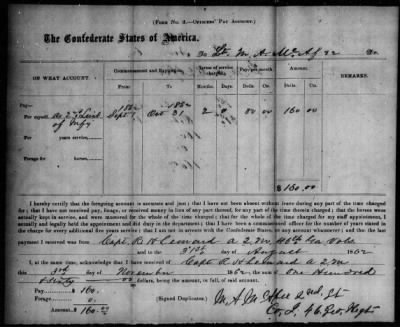 (FORM No. 3.—OFFICERS' PAY ACCOUNT.)
The Confederate States of America,
To Lt. M. A. Dr.
ON WHAT ACCOUNT.
Commencement and Expiration.
Terms of service charged.
Pay per month.
Amount.
REMARKS.
From To Months. Days. Dolls. Cts. Dolls. Cts.
1862 1862
PAY—
For myself, as 2d Lieut of Infy Sept 1 Oct 31 2 0 80 00 160 00
years service,
FORAGE for
horses.
$160.00
I hereby certify that the foregoing account is accurate and just; that I have not been absent without leave during any part of the time charged
for; that I have not received pay, forage, or received money in lieu of any part thereof, for any part of the time therein charged; that the horses
were actually kept in service, and were mustered for the whole of the time charged; that for the whole of the time charged for my staff appointment, I
actually and legally held the appointment and did duty in the department; that I have been a commissioned officer for the number of years stated in
the charge for every additional five years service; that I am not in arrears with the Confederate States, on any account whatsoever; and that the last
payment I received was from Capt. R H A Q M 46th Geo Vols
and to the 31st day of August 1862
I, at the same time, acknowledge that I have received of Capt R H A Q M
this 3rd day of November 1862, the sum of One Hundred
& Sixty dollars, being the amount, in full, of said account.
PAY $160.
FORAGE 0.
AMOUNT $160.00
(Signed Duplicates.)
M. A. 2nd Lt
Co I, 46 Geo Regt